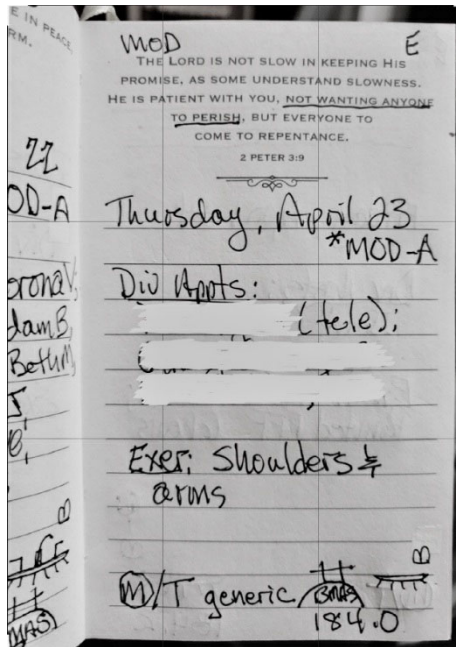 E IN PEACE,
RM.
22
OD-A
oronaV,
damB,
BethM,
B
MAS
MOD E
THE LORD IS NOT SLOW IN KEEPING HIS
PROMISE, AS SOME UNDERSTAND SLOWNESS.
HE IS PATIENT WITH YOU, NOT WANTING ANYONE
TO PERISH, BUT EVERYONE TO
COME TO REPENTANCE.
2 PETER 3:9
Thursday, April 23
*MOD-A
Div Appts:
(tele);
Exer: Shoulders &
arms
M/T generic BMAS B
184.0